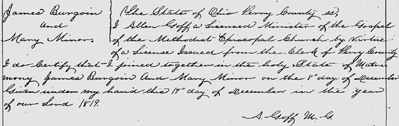 James Burgoin
And
Mary Minor
The State of Ohio Perry County ss
I Allen Goff a Licensed Minister of the Gospel
of the Methodist Episcopal Church by Virtue
of a License Issued from the Clerk of Perry County
I do Certify that I joined together in the holy State of Matri
mony James Burgoin And Mary Minor on the 8th day of December
Given under my hand this 18th day of December in the year
of our Lord 1819.
A. Goff M. G